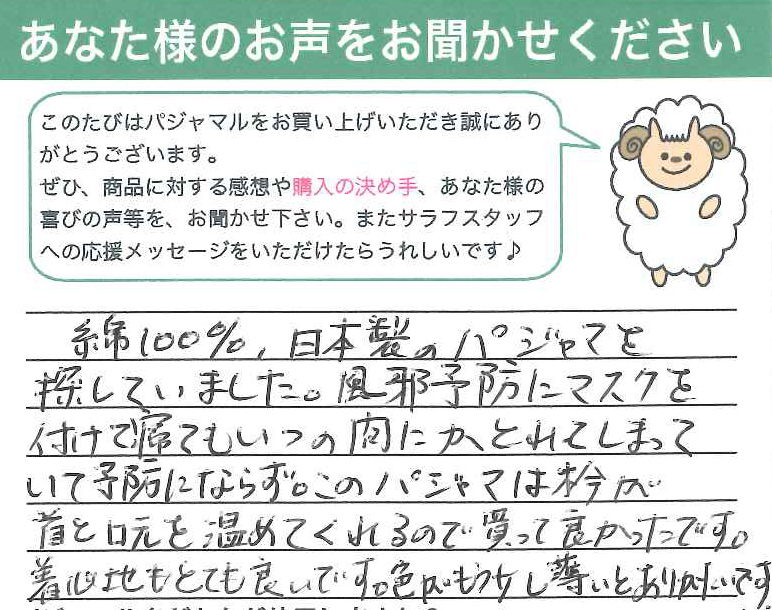 あなた様のお声をお聞かせください
このたびはパジャマルをお買い上げいただき誠にあり
がとうございます。
ぜひ、商品に対する感想や購入の決め手、あなた様の
喜びの声等を、お聞かせ下さい。またサラフスタッフ
への応援メッセージをいただけたらうれしいです♪
綿100%,日本製のパジャマを
探していました。風邪予防にマスクを
付けて寝てもいつの間にかとれてしまって
いて予防にならず。このパジャマは衿が
首と口元を温めてくれるので買って良かったです。
着心地もとても良いです。色がもう少し薄いとありがたいです